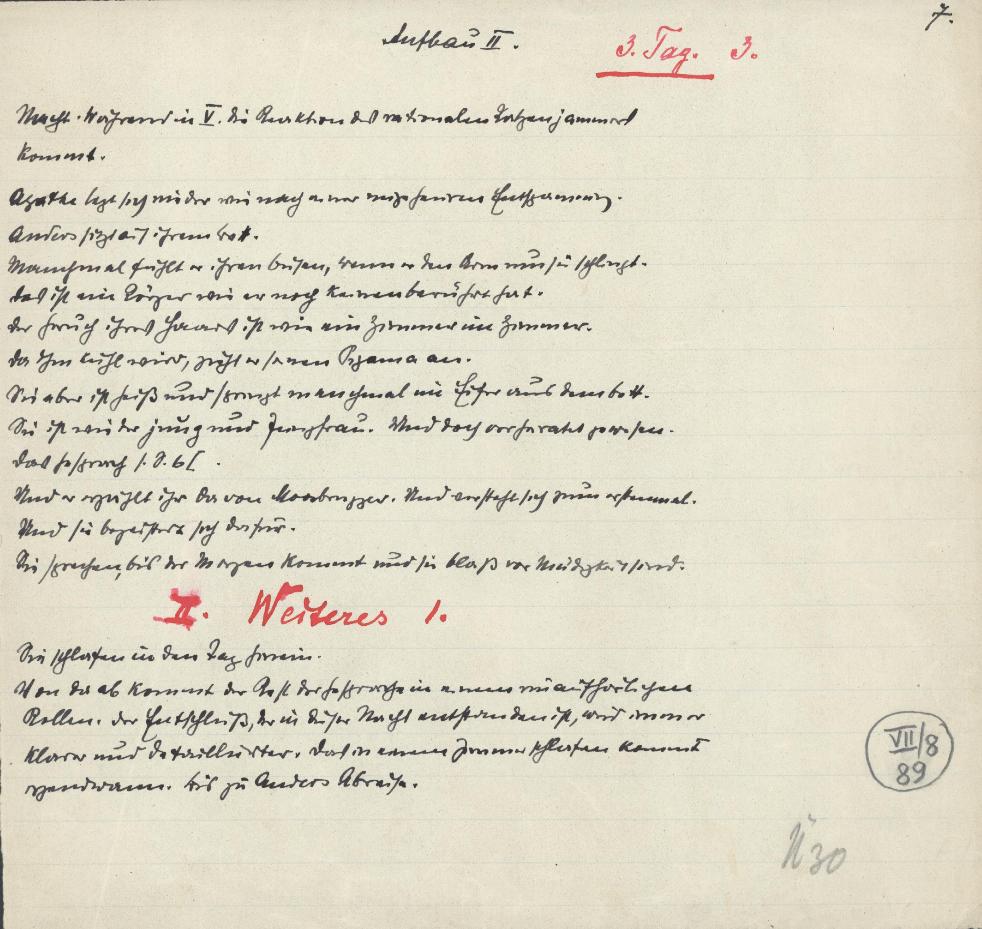 7.
Aufbau II.
3. Tag. 3.
Nacht. Während in V. die Reaktion des rationalen Katzenjammers
kommt.
Agathe legt sich nieder wie nach einer ungeheuren Entspannung.
Anders sitzt auf ihrem Bett.
Manchmal fühlt er ihren Busen, wenn er den Arm um sie schlingt.
Das ist ein Körper wie er noch keinen berührt hat.
Der Geruch ihres Haares ist wie ein Zimmer im Zimmer.
Da ihm kühl wird, zieht er seinen Pyjama an.
Sie aber ist heiß und springt manchmal im Eifer aus dem Bett.
Sie ist wieder jung und Jungfrau. Und doch verheiratet gewesen.
Das Gespräch s. S. 6 [.
Und er erzählt ihr da von Moosbrugger. Und versteht sich zum erstenmal.
Und sie begeistert sich dafür.
Sie sprechen, bis der Morgen kommt und sie blaß vor Müdigkeit sind.
II. Weiteres 1.
Sie schlafen in den Tag hinein.
Von da ab kommt der Rest der Gespräche in einem unaufhörlichen
Rollen. Der Entschluß, der in dieser Nacht entstanden ist, wird immer
klarer und detaillierter. Das in einem Zimmer schlafen kommt
irgendwann. Bis zu Anders Abreise.
VII/8
89
Ü 30